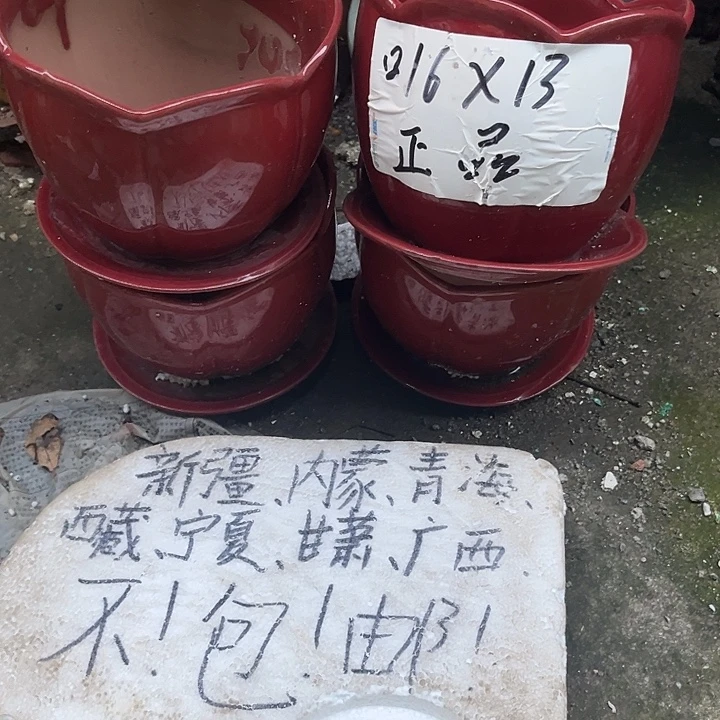 016×13
正品
新疆、内蒙、青海、
西藏、宁夏、甘萧、广西、
不!包!邮!